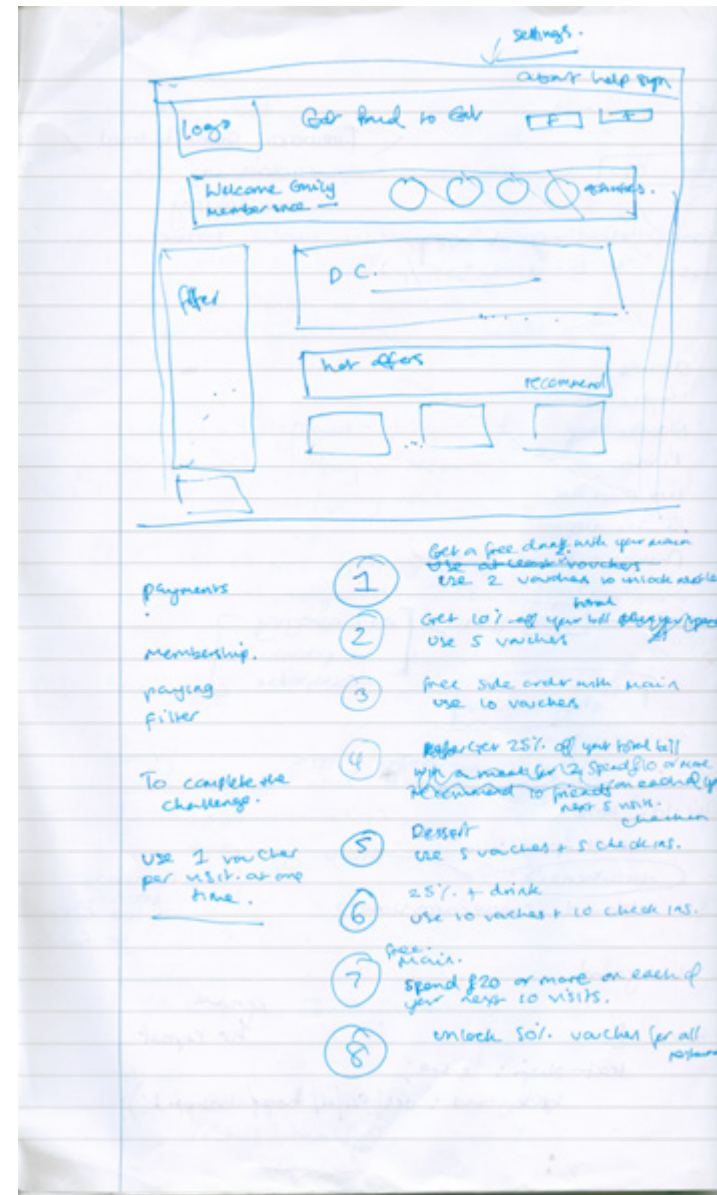 settings.
about help sign
Logo
Get Paid to Eat
F
Welcome Emily
member since
filter
D C.
hot offers
recommend
payments
membership.
paying
filter
To complete the
challenge.
use 1 voucher
per visit. at one
time.
1
Get a free drink with your main
use at least vouchers
use 2 vouchers to unlock
2
total
Get 10% off your bill
use 5 vouchers
3
free side order with main
use 10 vouchers
4
Get 25% off your total bill
with a meal for 2, spend £10 or more
recommend to friends on each of
next 5 visits.
5
Dessert
use 5 vouchers + 5 check ins.
6
25% + drink
use 10 vouchers + 10 check ins.
7
free.
main.
spend £20 or more on each of
your next 10 visits.
8
unlock 50% voucher for all